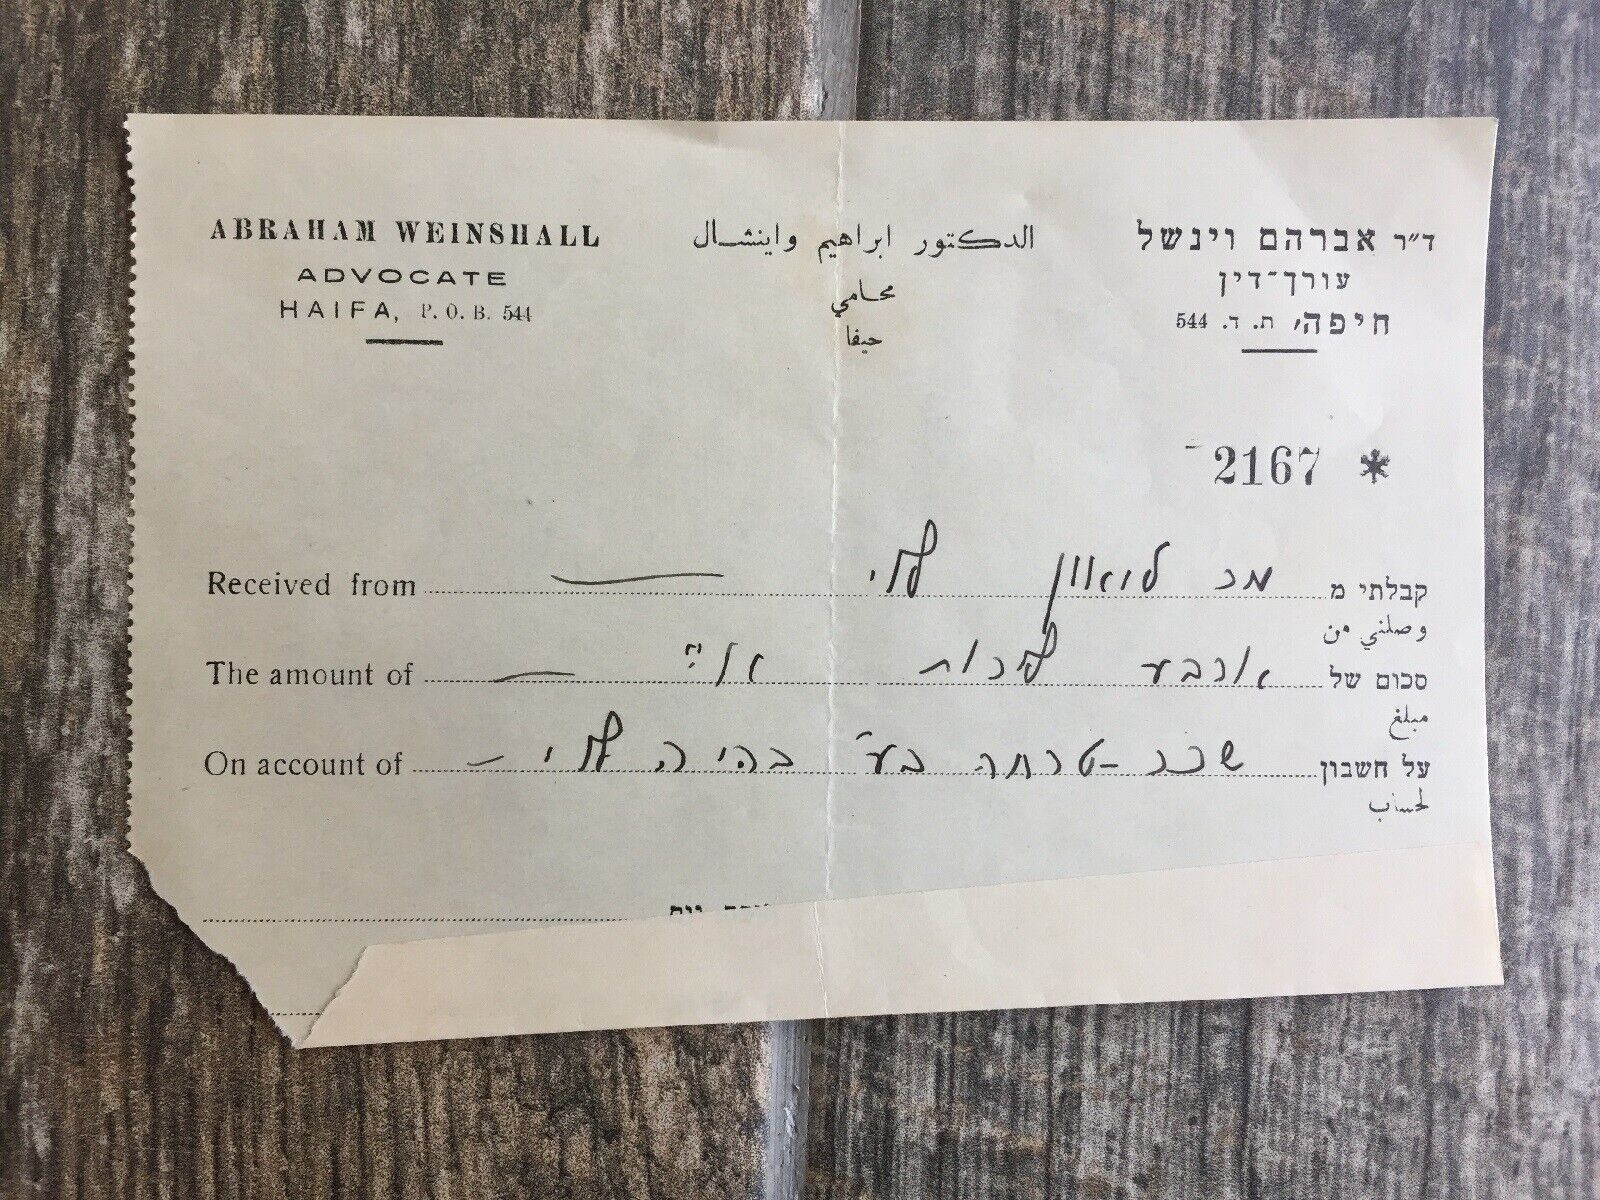 ABRAHAM WEINSHALL
ADVOCATE
HAIFA, P. O. B. 544
الدكتور ابراهيم واينشال
محامي
حيفا
ד״ר אברהם וינשל
עורך־דין
חיפה, ת. ד. 544
2167 *
Received from מר ליאון לוי קבלתי מ
وصلني من
The amount of ארבע לירות א״י סכום של
مبلغ
On account of שכר טרחה בע׳ לוי על חשבון
لحساب